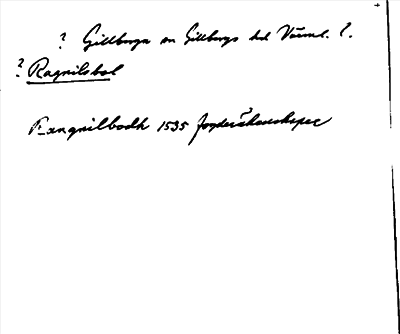 ? Gillberga sn Gillbergs hd Värml. ?.
? Ragnilsbol
Rangnilbodh 1535 fogderäkenskaper